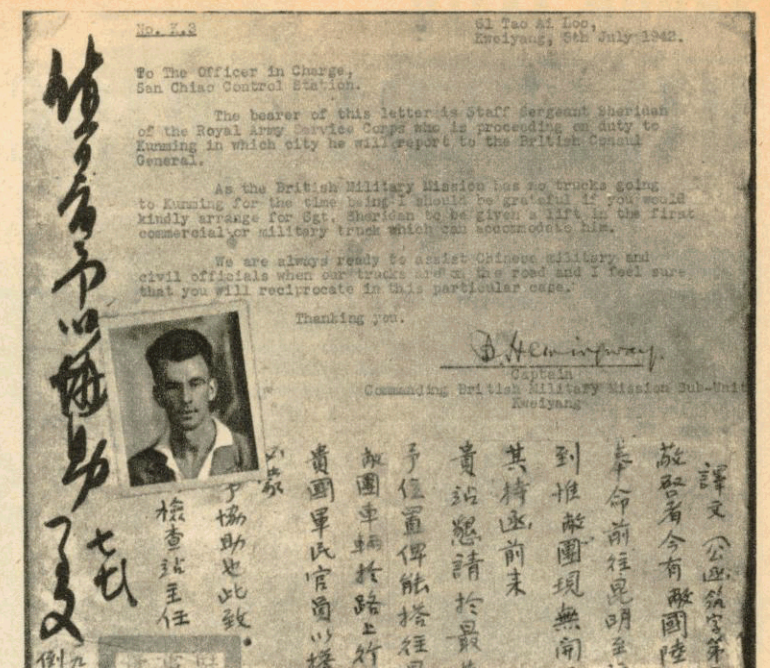 No. K.3
61 Tao Ai Loo,
Kweiyang, 6th July 1942.
To The Officer in Charge,
San Chiao Control Station.
The bearer of this letter is Staff Sergeant Sheridan
of the Royal Army Service Corps who is proceeding on duty to
Kunming in which city he will report to the British Consul
General.
As the British Military Mission has no trucks going
to Kunming for the time being I should be grateful if you would
kindly arrange for Sgt. Sheridan to be given a lift in the first
commercial or military truck which can accommodate him.
We are always ready to assist Chinese military and
civil officials when our trucks are on the road and I feel sure
that you will reciprocate in this particular case.
Thanking you.
D. Hemingway.
Captain
Commanding British Military Mission Sub-Unit
Kweiyang
譯文(公函筑字第
敬啓者今有敝國陸
奉命前往昆明至
到惟敝團現無開
其持函前来
貴站懇請於最
予位置俾能搭往
敝團車輛於路上行
貴國軍民官員以
必蒙
予協助也此致
檢查站主任
值星官予以助
七七